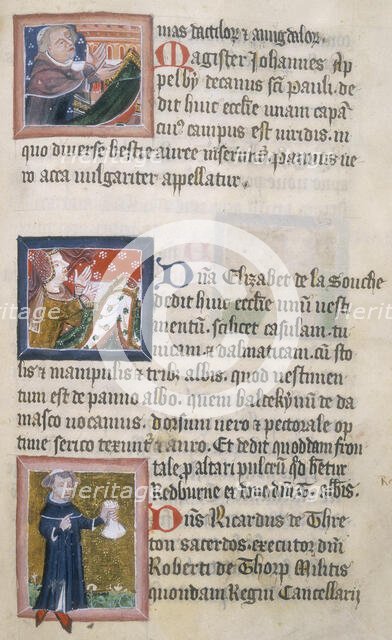 mas dactilor & amigdalor.
Magister Johannes Ap
pelby decanus sci pauli. de
dit huic eccle unam capā
cui⁹ campus est viridis. in
quo diverse bestie auree inserunt. pannus ve
ro acca vulgariter appellatur.
Dn̄a Elizabet de la Souche
dedit huic eccle unū vesti
mentū. scilicet casulam. tu
nicam. & dalmaticam. cū sto
lis & manipulis & trib; albis. quod vestimen
tum est de panno albo. quem baltekyn⁹ de da
masco vocamus. dorsum vero & pectorale op
time serico texunt² & auro. Et dedit quoddam fron
tale p altari pulcrū qd h̄etur
Redburne
Dn̄s Ricardus de Thre
ton sacerdos. executor dn̄i
Roberti de Thorp Militis
quondam Regni Cancellarii
Heritage
Heritage
Heritage
Heritage
Heritage